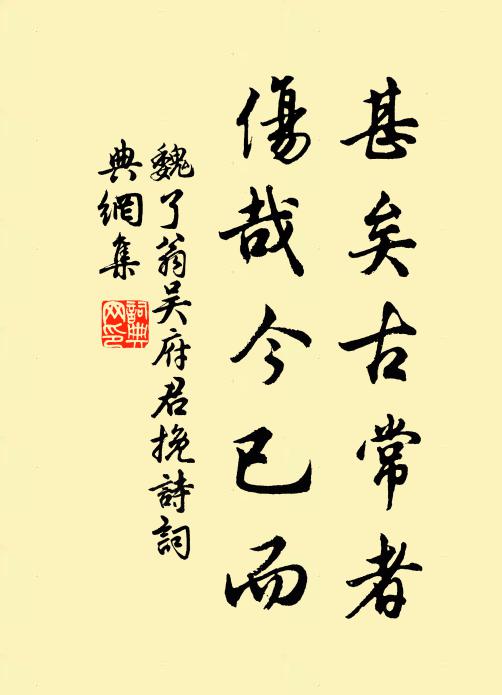 甚矣古常者
傷哉今已而
魏了翁吴府君挽詩詞
典網集
詞典網印